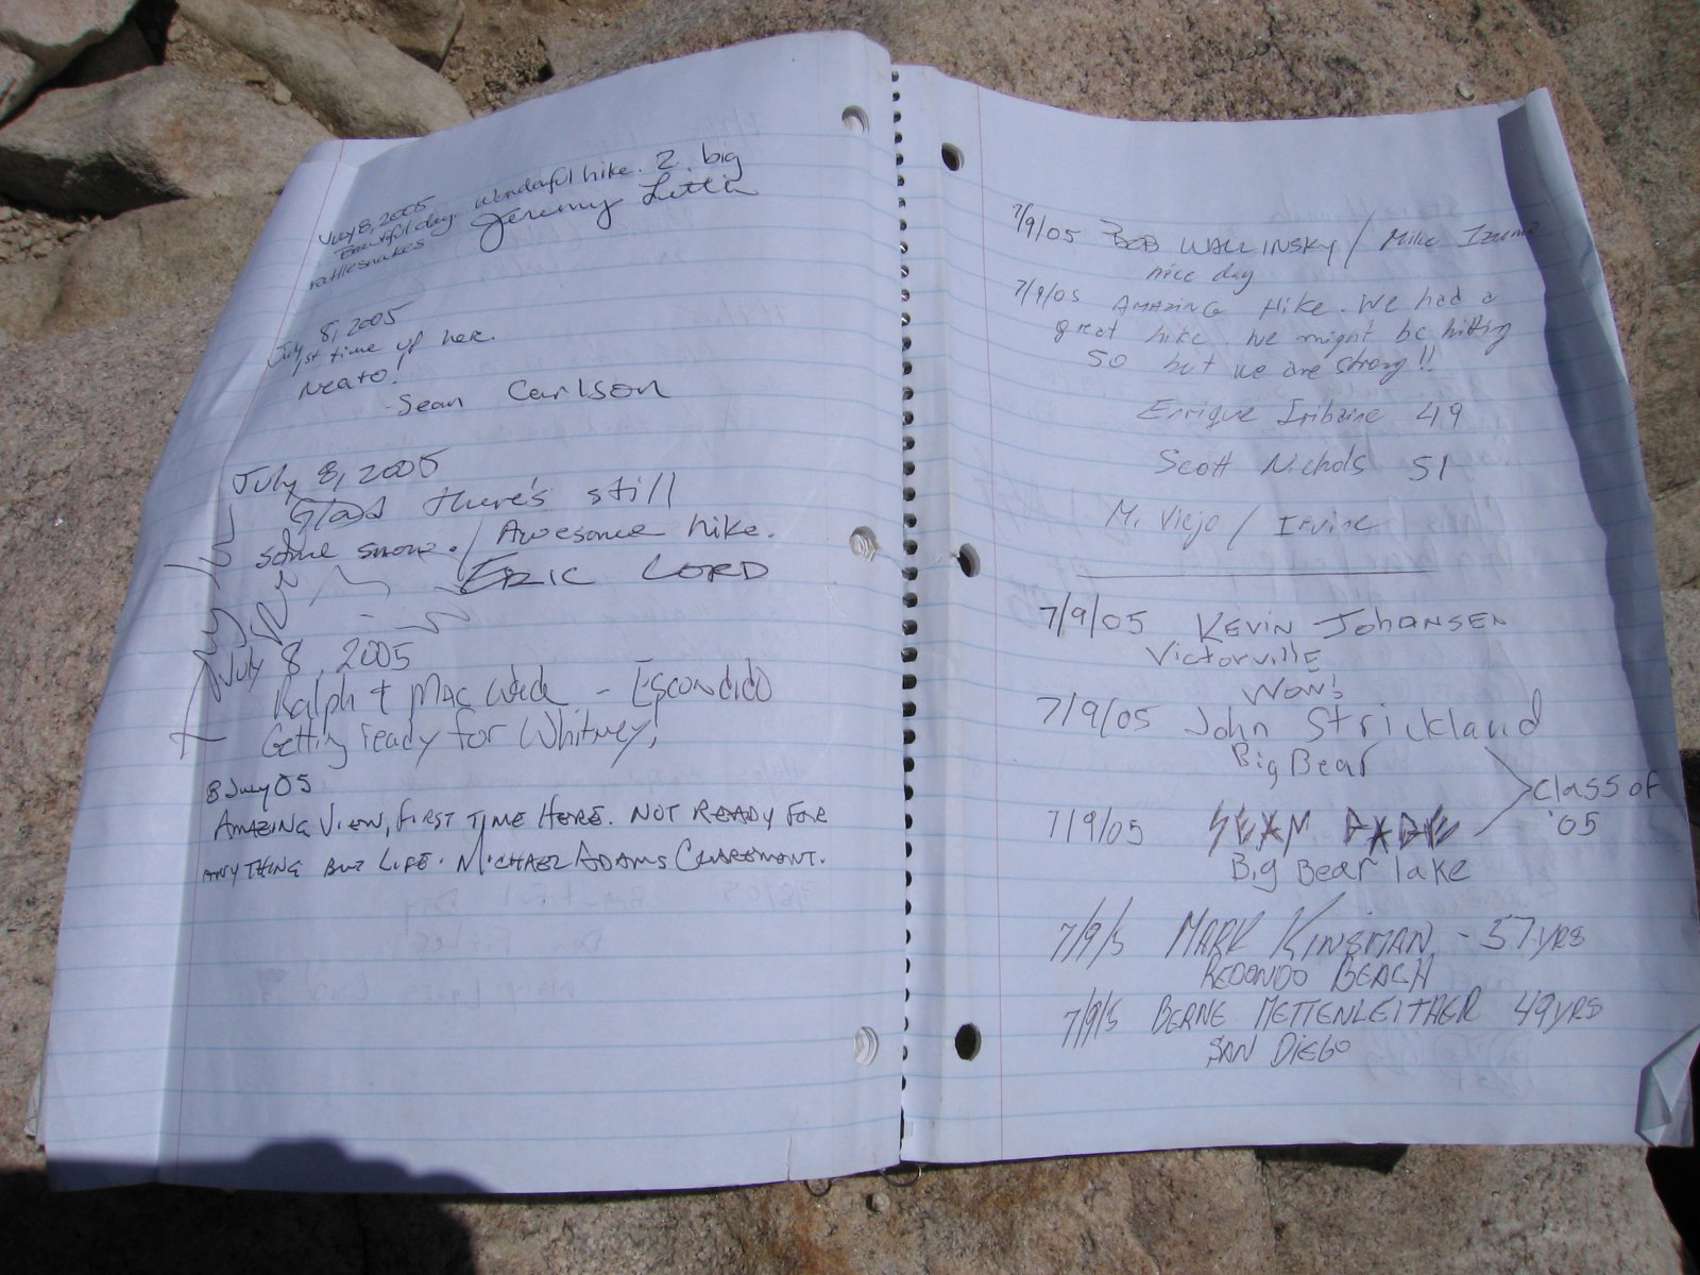 July 8, 2005
Beautiful day. Wonderful hike. 2 big
rattlesnakes Jeremy
July 8, 2005
1st time up here.
Neato!
-Sean Carlson
July 8, 2005
Glad there's still
some snow. / Awesome hike.
ERIC LORD
July 8, 2005
Ralph + Mac Wade - Escondido
Getting ready for Whitney!
8 July 05
AMAZING VIEW, FIRST TIME HERE. NOT READY FOR
ANYTHING BUT LIFE. MICHAEL ADAMS CLAREMONT.
7/9/05 BOB WALLINSKY / Mike
nice day
7/9/05 AMAZING Hike. We had a
great hike. We might be hitting
50 but we are strong!!
Enrique 49
Scott Nichols 51
M. Viejo / Irvine
7/9/05 KEVIN JOHANSEN
VictorvillE
WOW!
7/9/05 John Strickland
Big Bear
Class of
'05
7/9/05 SEAN
Big Bear lake
7/9/5 MARK KINSMAN - 57 YRS
REDONDO BEACH
7/9/5 BERNE METTENLEITHER 49 YRS
SAN DIEGO